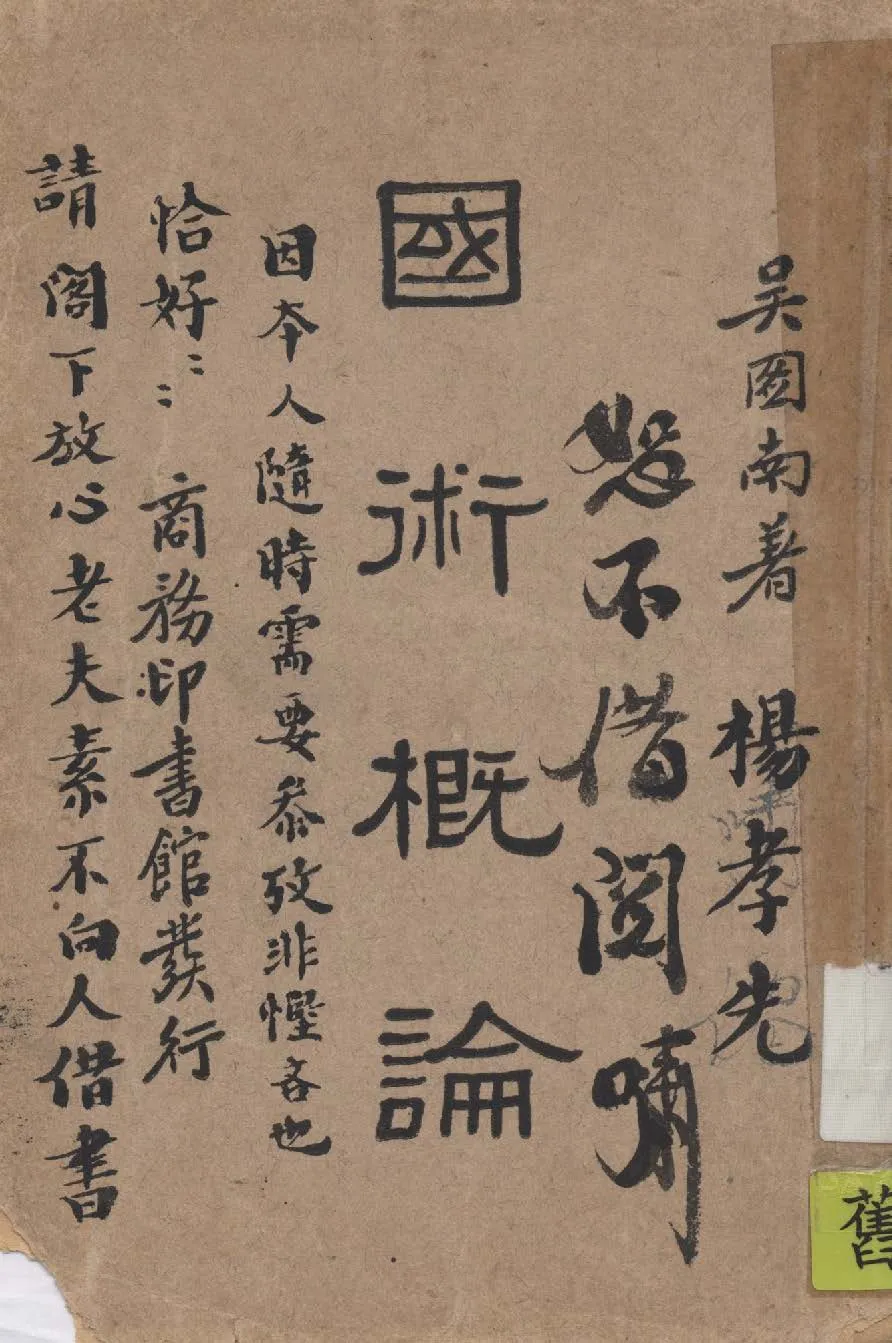 吳圖南著 楊孝先
恕不借閱 嘯
國術概論
因本人隨時需要參攷非慳吝也
恰好〻〻 商務印書館發行
請閣下放心老夫素不向人借書
舊